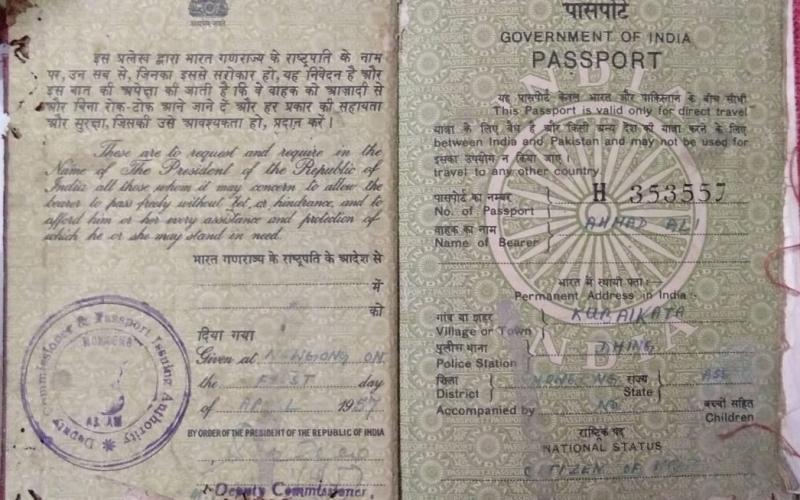 इस प्रलेख द्वारा भारत गणराज्य के राष्ट्रपति के नाम
पर, उन सब से, जिनका इससे सरोकार हो, यह निवेदन है और
इस बात की अपेक्षा की जाती है कि वे वाहक को आज़ादी से
और बिना रोक-टोक आने जाने दें और हर प्रकार की सहायता
और सुरक्षा, जिसकी उसे आवश्यकता हो, प्रदान करें।
These are to request and require in the
Name of The President of the Republic of
India all those whom it may concern to allow the
bearer to pass freely without let or hindrance, and to
afford him or her every assistance and protection of
which he or she may stand in need.
भारत गणराज्य के राष्ट्रपति के आदेश से
में
को
दिया गया
Given at NOWGONG ON
the FIRST day
of APRIL 1957
BY ORDER OF THE PRESIDENT OF THE REPUBLIC OF INDIA
Deputy Commissioner,
Deputy Commissioner & Passport Issuing Authority
पासपोर्ट
GOVERNMENT OF INDIA
PASSPORT
INDIA
यह पासपोर्ट केवल भारत और पाकिस्तान के बीच सीधी
This Passport is valid only for direct travel
यात्रा के लिए वैध है और किसी अन्य देश की यात्रा करने के लिए
between India and Pakistan and may not be used for
इसका उपयोग न किया जाए।
travel to any other country.
पासपोर्ट का नम्बर
No. of Passport
H 353557
वाहक का नाम
Name of Bearer
AHMAD ALI
भारत में स्थायी पता:—
Permanent Address in India:-
गांव या शहर
Village or Town
KUBAIKATA
पुलीस थाना
Police Station
DHING
जिला
District
राज्य
State
Accompanied by NO
बच्चों सहित
Children
INDIA
राष्ट्रिक पद
NATIONAL STATUS
CITIZEN OF